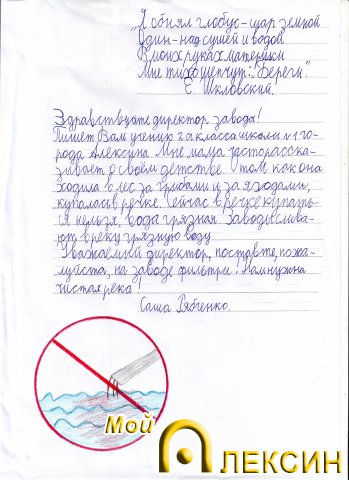 "Я обнял глобус-шар земной
Один-над сушей и водой
В моих руках материки
Мне тихо шепчут: "Береги".
Е Шкловский.
Здравствуйте директор завода!
Пишет Вам ученик 2а класса школы №1 го-
рода Алексина. Мне мама часто расска-
зывает о своём детстве. О том как она
ходила в лес за грибами и за ягодами,
купалась в речке. Сейчас в речке купать-
ся нельзя, вода грязная. Заводы слива-
ют в реку грязную воду.
Уважаемый директор, поставте, пожа-
луйста, на заводе фильтры! Нам нужна
чистая река!
Саша Рябченко.
Мой
Алексин